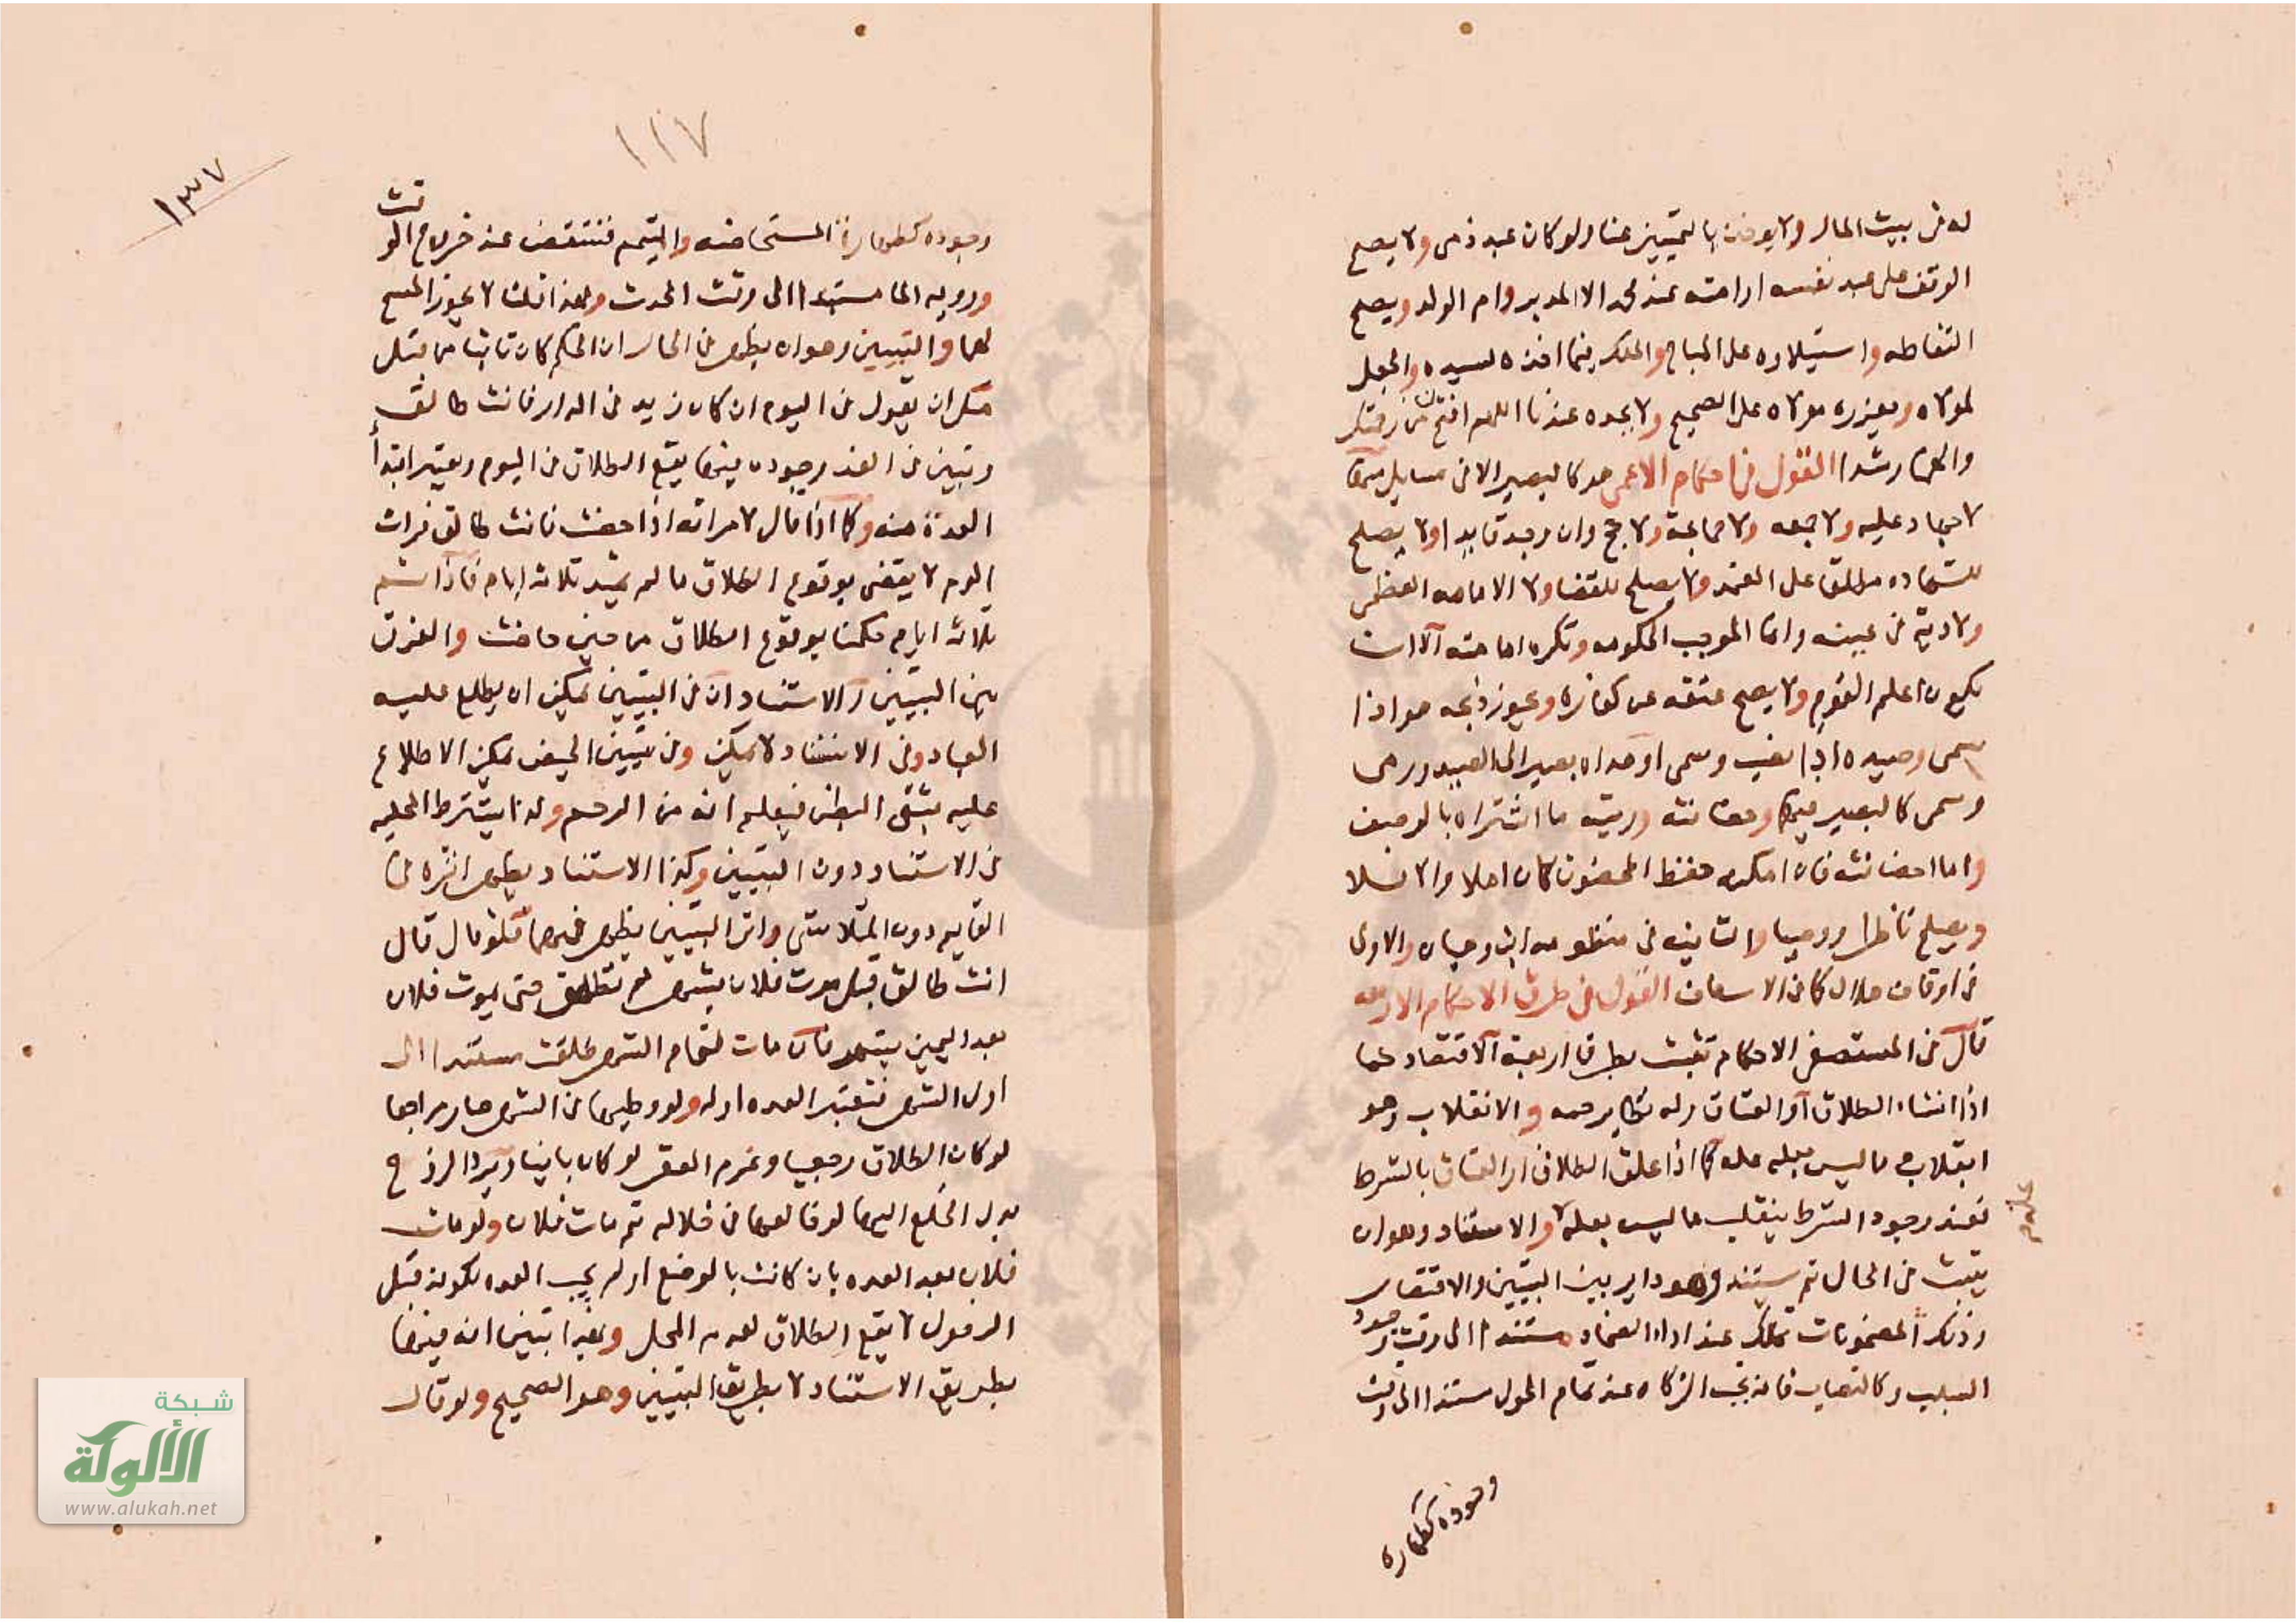 له في بيت المال ولا يوضف بالتمييز عنا ولو كان عبد ذمى ولا يصح
الوقف على عبد نفسه او امته عند محمد الا المدبر وام الولد ويصح
التقاطه واستيلاوه على المباح والملك فيما اخذه لسيده والجعل
لمولاه ويعزره مولاه على الصحيح ولا يحده عندنا اللهم افتح لنا من رحمتك
والهمنا رشدا القول في احكام الاعمى هو كالبصير الا في مسايل منها
لا جهاد عليه ولا جمعه ولا جماعة ولا حج وان وجد قايدا ولا يصلح
للشهاده مطلقا على المعتمد ولا يصلح للقضا ولا الامامه العظمى
ولا دية في عينه وانما الموجب الحكومه وتكره امامته الا ان
يكون اعلم القوم ولا يصح عتقه عن كفارة ويجوز ذبحه هو اذا
سمى وصيده اذا نصب وسمى او هداه بصير الى الصيد ورمى
وسمى كالبصير فيها وحضانته ورؤيته ما اشتراه بالوصف
واما احضانته فان امكنه حفظ المحضون كان اهلا والا فلا
ويصلح ناظرا ووصيا والثانيه في منظومه ابن وهبان والاولى
في اوقاف هلال كما في الاسعاف القول في طرق الاحكام الاربعه
قال في المستصفى الاحكام تثبت بطرق اربعة الاقتصار كما
اذا انشاء الطلاق او العتاق وله نظاير جمه والانقلاب وهو
انقلاب ما ليس بعله عله كما اذا علق الطلاق او العتاق بالشرط
فعند وجود الشرط ينقلب ما ليس بعلة والاستناد وهو ان
علة
يثبت في الحال ثم يستند وهو داير بين التبيين والاقتصار
وذلك المضمونات تملك عند اداء الضمان مستندا الى وقت وجود
السبب وكالنصاب فانه يجب الزكاه عند تمام الحول مستندا الى وقت
وجوده كطهارة
١١٧
١٣٧
وجوده كطهارة المستحاضه والمتيمم فتنتقض عند خروج الوقت
وروية الما مستندا الى وقت الحدث ولهذا قلنا لا يجوز المسح
لهما والتبيين وهو ان يظهر في الحال ان الحكم كان ثابتا من قبل
مثل ان يقول في اليوم ان كان زيد في الدار فانت طالق
وتبين في الغد وجوده فيها يقع الطلاق في اليوم ويعتبر ابتدأ
العدة منه وكما اذا قال لامراته اذا حضت فانت طالق فرات
الدم لا يقضى بوقوع الطلاق ما لم يمتد ثلاثة ايام فاذا تم
ثلاثة ايام حكمنا بوقوع الطلاق من حين حاضت والفرق
بين التبيين والاستناد ان في التبيين يمكن ان يطلع عليه
العباد وفي الاستناد لا يمكن وفي تبيين الحيض يمكن الاطلاع
عليه بشق البطن فيعلم انه من الرحم ولذا يشترط المحليه
في الاستناد دون التبيين وكذا الاستناد يظهر اثره في
القايم دون المتلاشي واثر التبيين يظهر فيهما فلو قال قال
انت طالق قبل موت فلان بشهر لم تطلق حتى يموت فلان
بعد اليمين بشهر فان مات لتمام الشهر طلقت مستندا الى
اول الشهر فتعتبر العده اوله ولو وطيها في الشهر صار مراجعا
لو كان الطلاق رجعيا وغرم العقر لو كان باينا ويرد الزوج
بدل الخلع اليها لو خالعها في خلاله ثم مات فلان ولو مات
فلان بعد العده بان كانت بالوضع او لم يجب العده لكونه قبل
الدخول لا يقع الطلاق لعدم المحل وبهذا تبين انه فيها
بطريق الاستناد لا بطريق التبيين وهو الصحيح ولو قال
شبكة
الألوكة
www.alukah.net